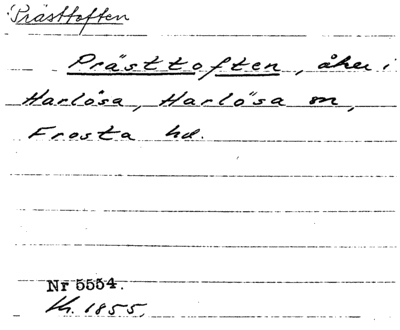 Prästtoften
Prästtoften, åker i
Harlösa, Harlösa sn,
Frosta hd.
Nr 5554.
1855.